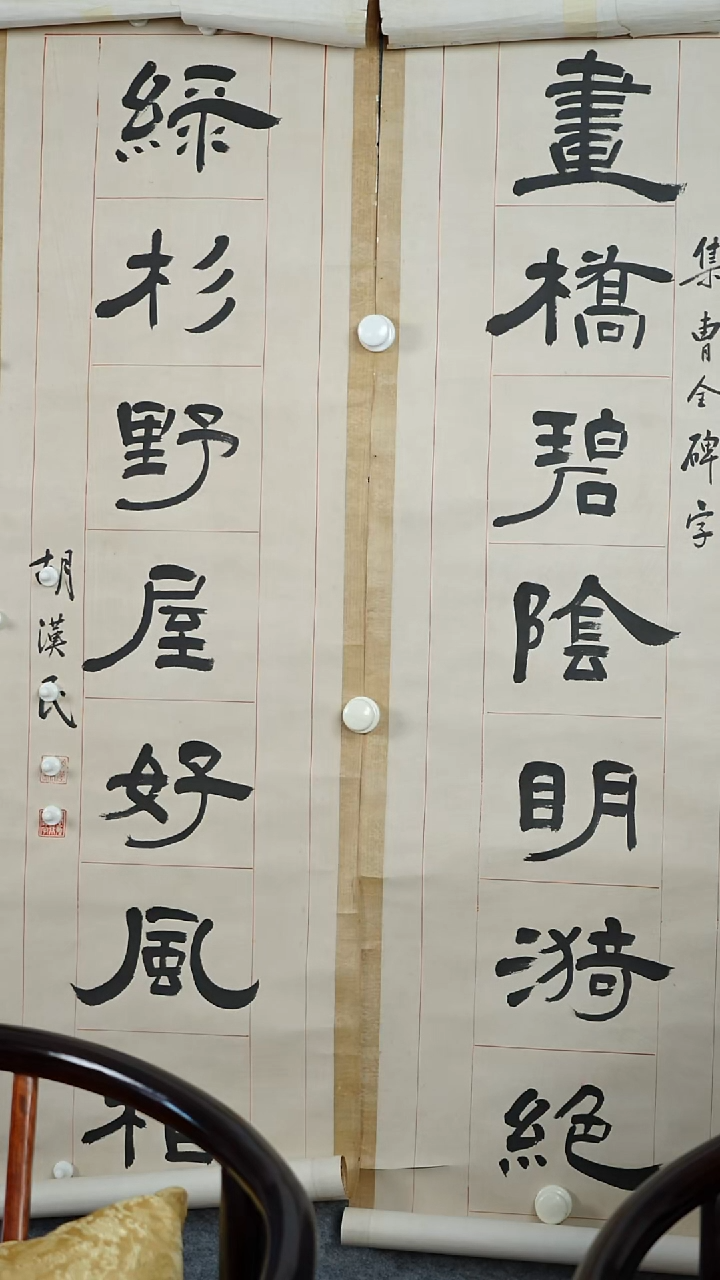 集曹全碑字
畫橋碧陰明漪絕
綠杉野屋好風相
胡漢民